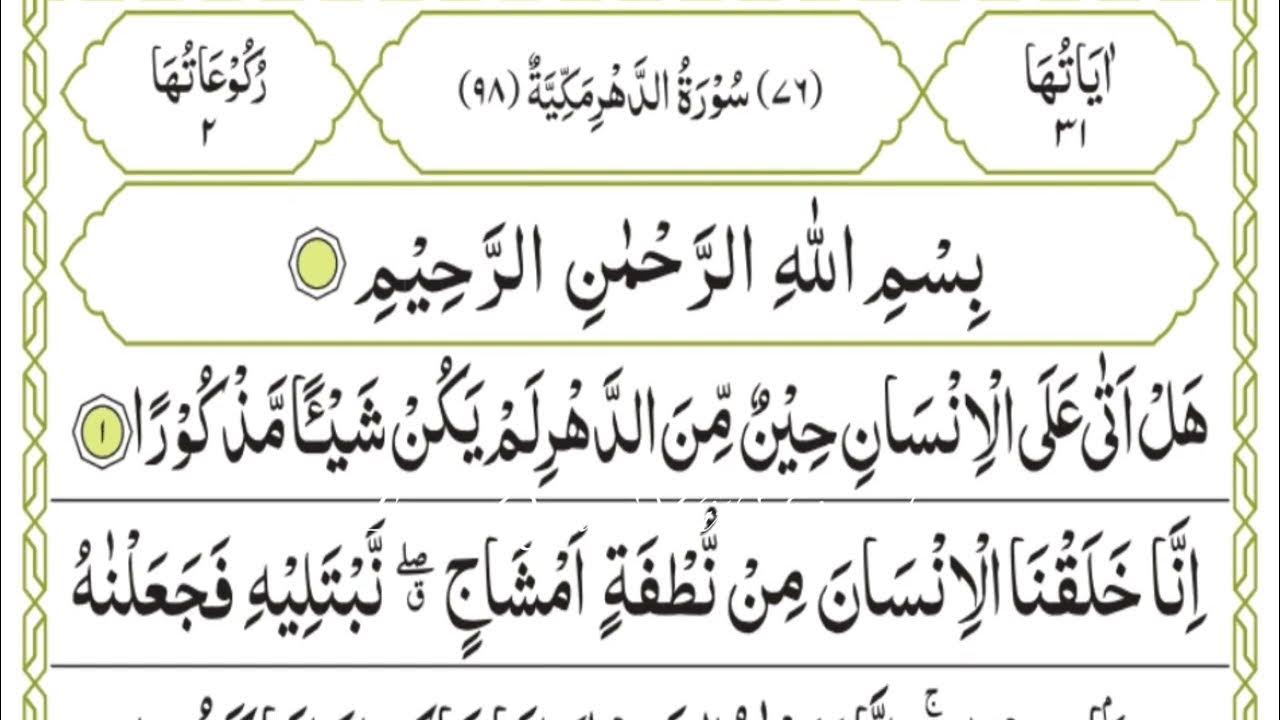 اٰيَاتُهَا
٣١
(٧٦) سُوْرَةُ الدَّهْرِ مَكِّيَّةٌ (٩٨)
رُكُوْعَاتُهَا
٢
بِسْمِ اللّٰهِ الرَّحْمٰنِ الرَّحِيْمِ
هَلْ اَتٰى عَلَى الْاِنْسَانِ حِيْنٌ مِّنَ الدَّهْرِ لَمْ يَكُنْ شَيْـًٔا مَّذْكُوْرًا ١
اِنَّا خَلَقْنَا الْاِنْسَانَ مِنْ نُّطْفَةٍ اَمْشَاجٍ ۖق نَّبْتَلِيْهِ فَجَعَلْنٰهُ